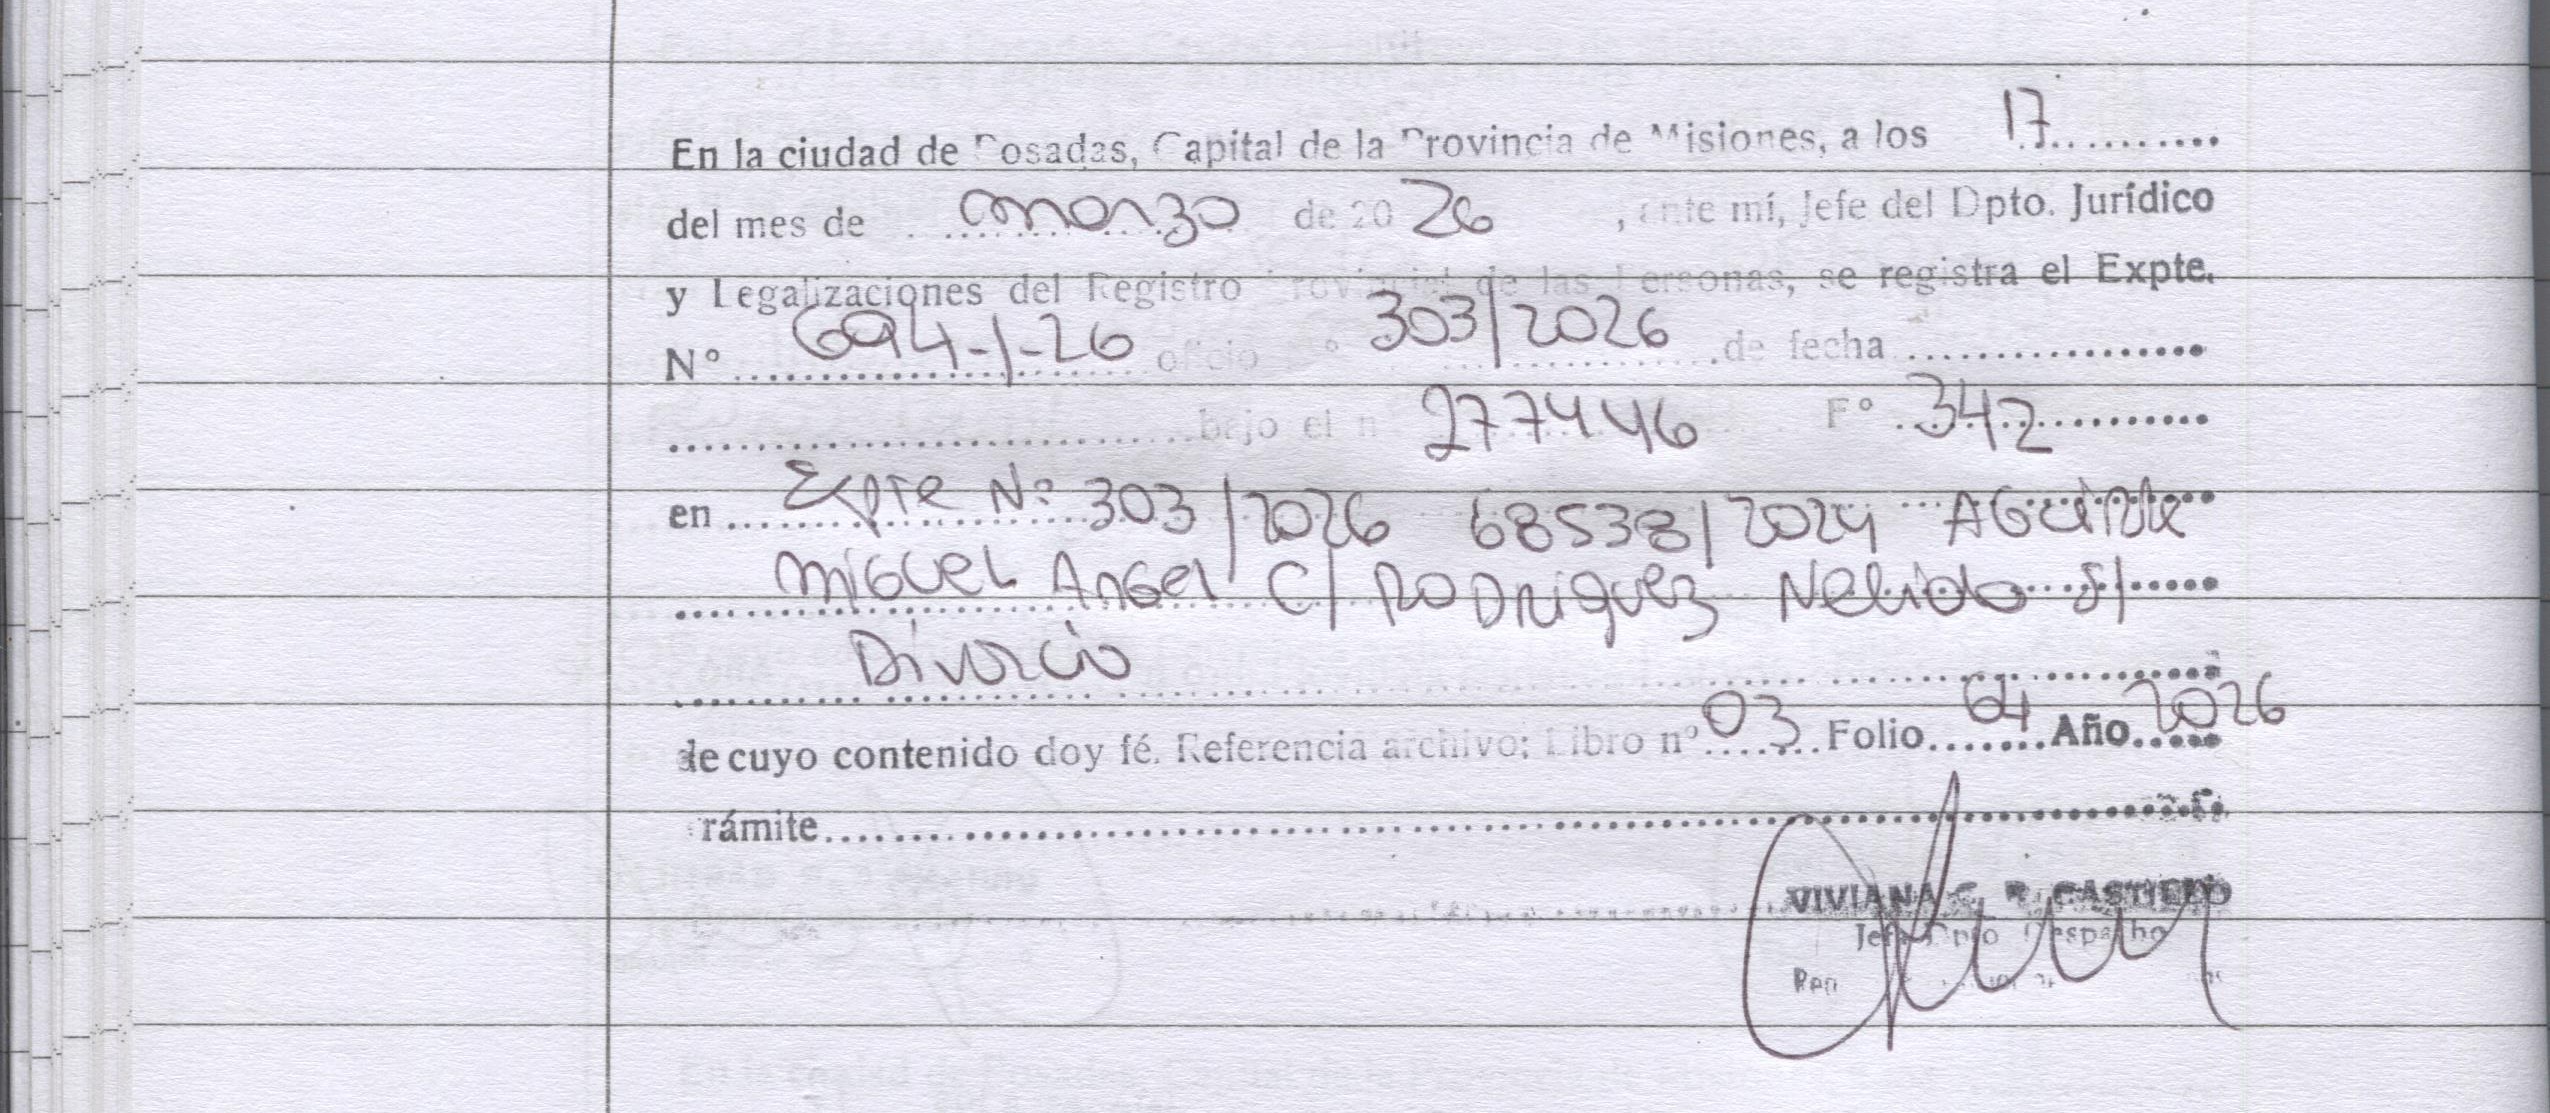 En la ciudad de Posadas, Capital de la Provincia de Misiones, a los 17
del mes de marzo de 2026, ante mí, Jefe del Dpto. Jurídico
y Legalizaciones del Registro Provincial de las Personas, se registra el Expte.
N° 694-1-26 oficio n° 303/2026 de fecha
bajo el n 277446 F° 342
en Expte N° 303/2026 68538/2024 AGUIRRE
MIGUEL ANGEL C/ RODRIGUEZ Nelida S/
Divorcio
de cuyo contenido doy fé. Referencia archivo: Libro n° 03 Folio 64 Año 2026
rámite
VIVIANA C. R. CASTILLO
Jefa Dpto Despacho